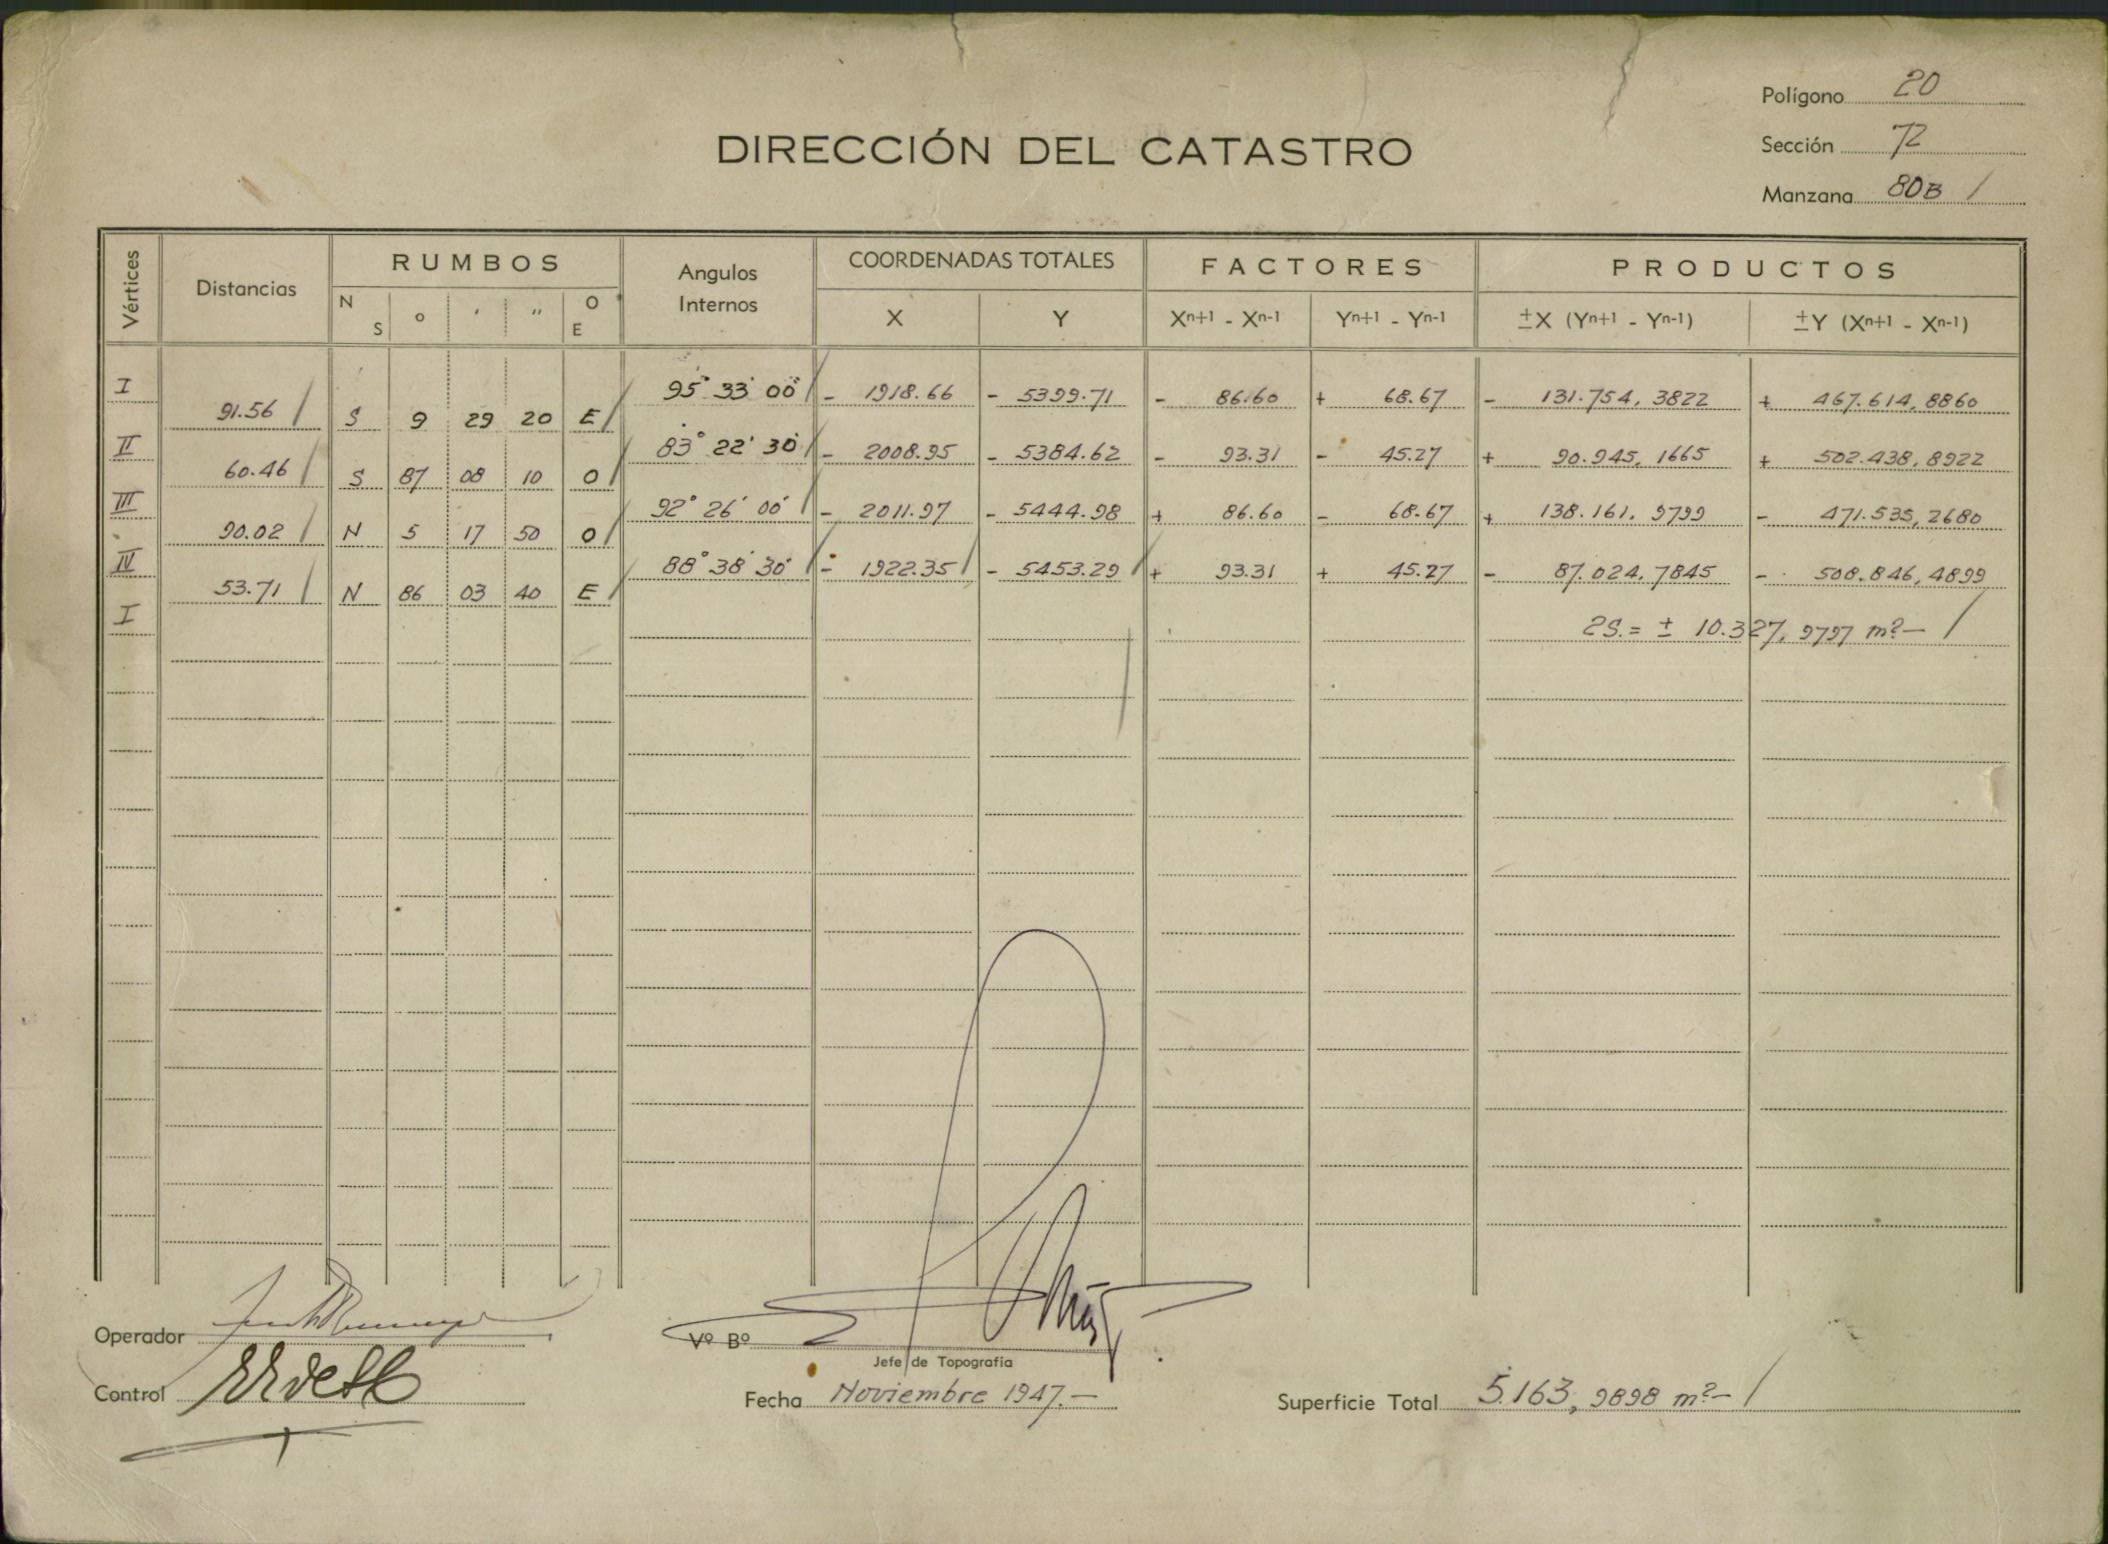 Polígono 20
DIRECCIÓN DEL CATASTRO
Sección 72
Manzana 80B /
Vértices Distancias RUMBOS Angulos Internos COORDENADAS TOTALES FACTORES PRODUCTOS
N S ° ' " O E X Y Xⁿ⁺¹ - Xⁿ⁻¹ Yⁿ⁺¹ - Yⁿ⁻¹ ±X (Yⁿ⁺¹ - Yⁿ⁻¹) ±Y (Xⁿ⁺¹ - Xⁿ⁻¹)
I 95° 33' 00" / - 1918.66 - 5399.71 - 86.60 + 68.67 - 131.754,3822 + 467.614,8860
91.56 / S 9 29 20 E /
II 83° 22' 30" / - 2008.95 - 5384.62 - 93.31 - 45.27 + 90.945,1665 + 502.438,8922
60.46 / S 87 08 10 O /
III 92° 26' 00" / - 2011.97 - 5444.98 + 86.60 - 68.67 + 138.161,9799 - 471.535,2680
90.02 / N 5 17 50 O /
IV 88° 38' 30" / - 1922.35 / - 5453.29 / + 93.31 + 45.27 - 87.024,7845 - 508.846,4899
53.71 / N 86 03 40 E /
I 2S.= ± 10.327,9797 m².- /
Operador
Vº Bº
Jefe de Topografía
Control
Fecha Noviembre 1947.-
Superficie Total 5.163,9898 m².- /